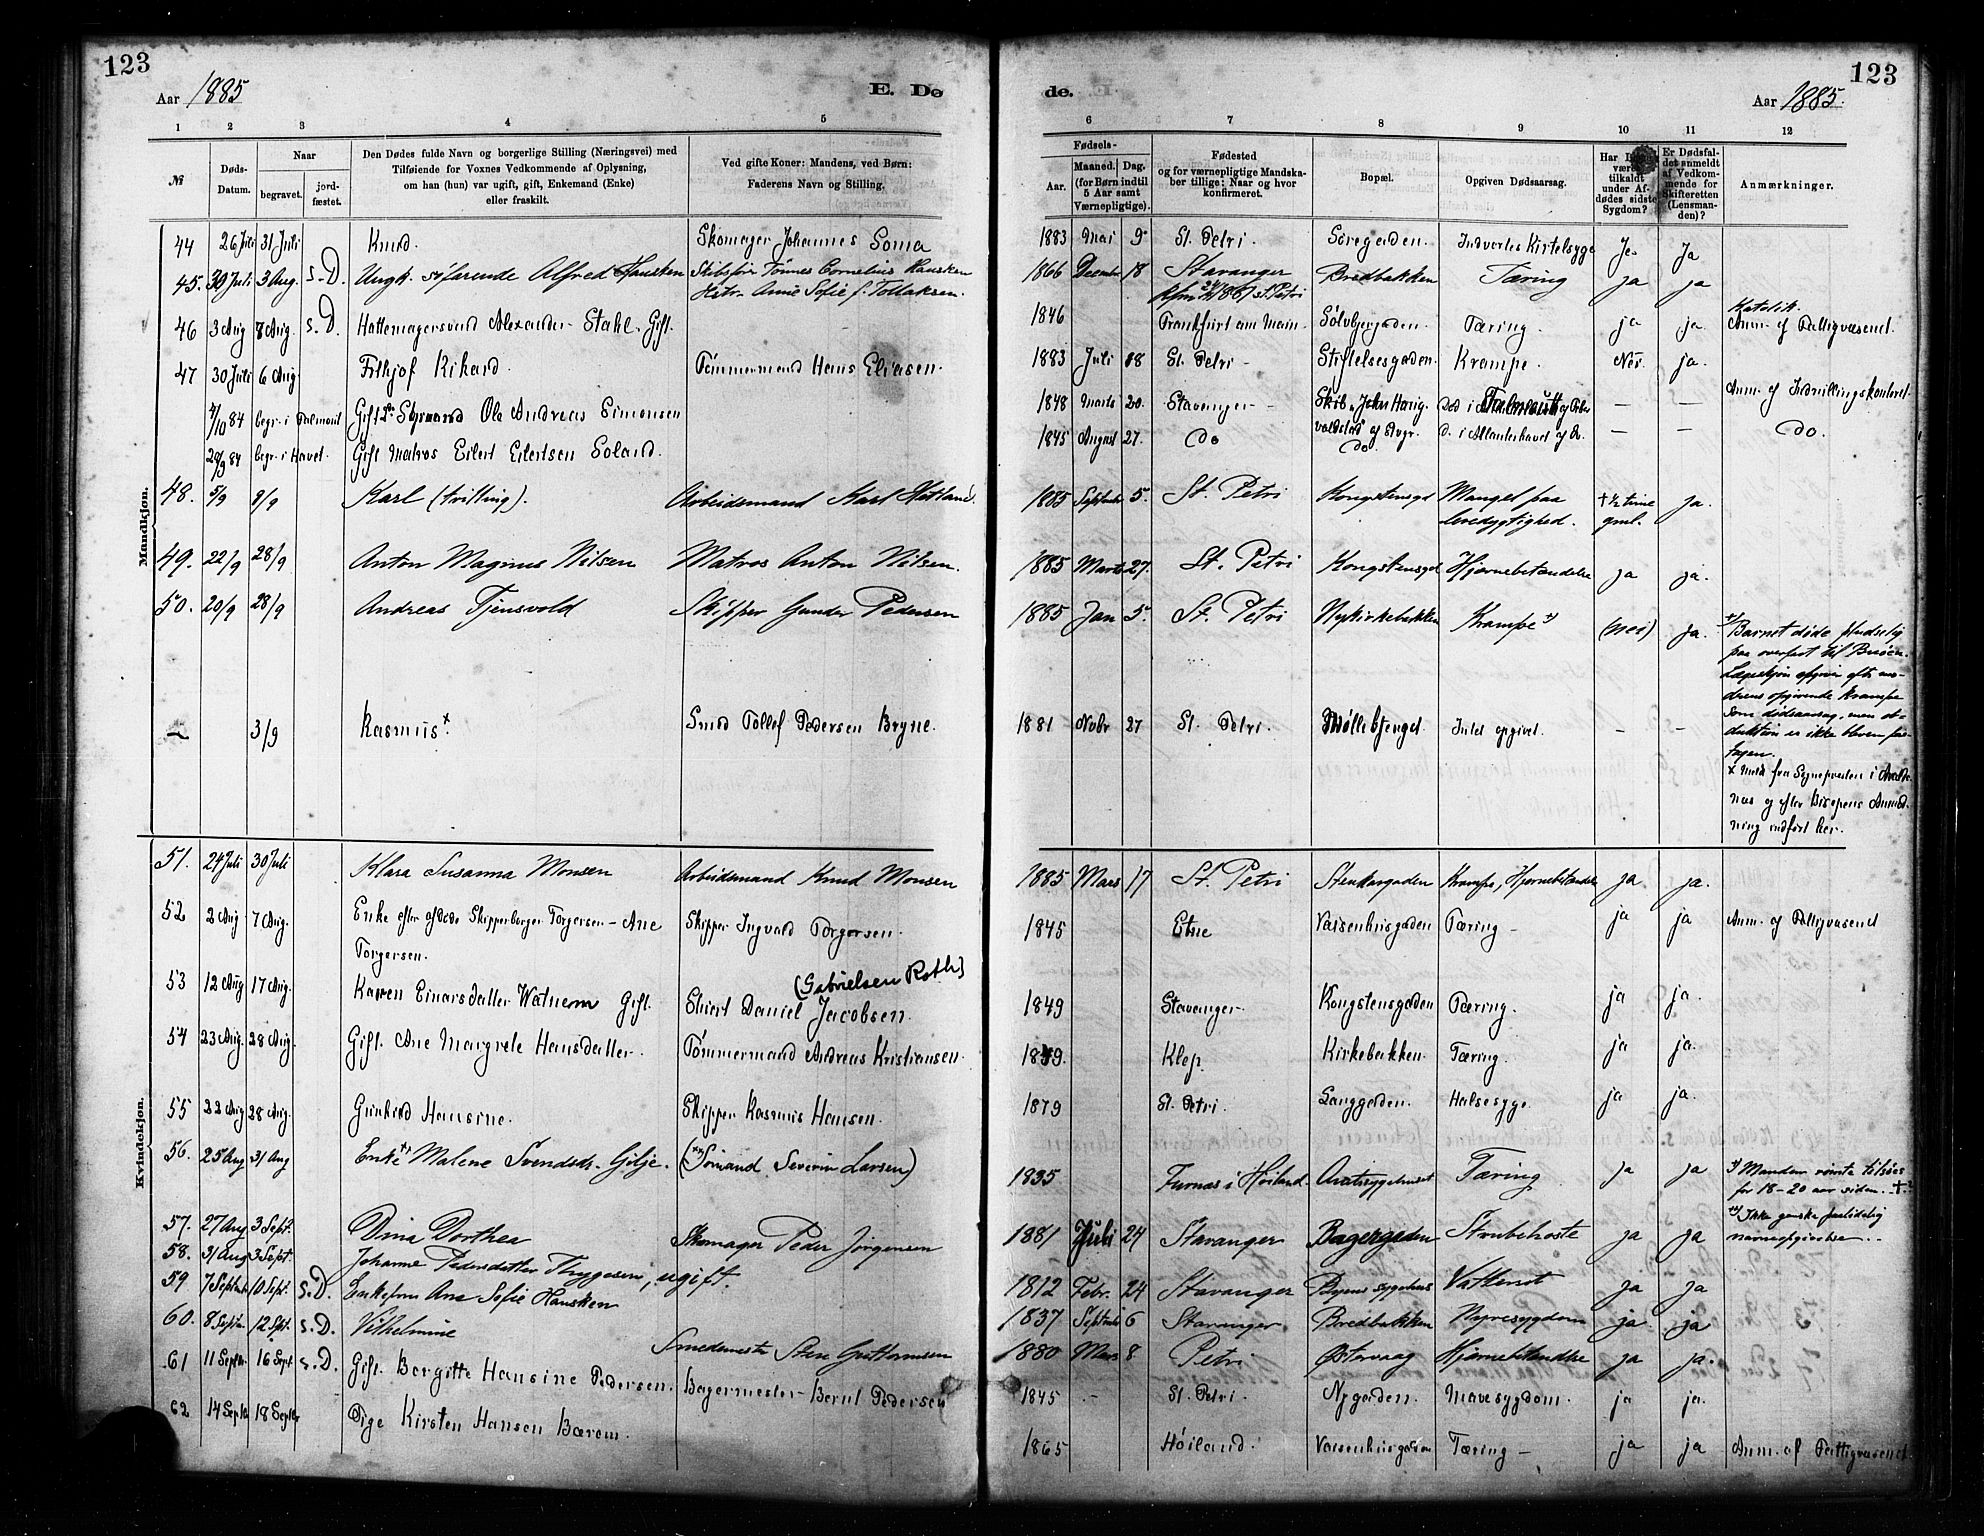 123
Aar 1885
E. Dø
1 2 3 4 5
№
Døds-Datum.
Naar
begravet.
jord-fæstet.
Den Dødes fulde Navn og borgerlige Stilling (Næringsvei) med
Tilføiende for Voxnes Vedkommende af Oplysning,
om han (hun) var ugift, gift, Enkemand (Enke)
eller fraskilt.
Ved gifte Koner: Mandens, ved Børn:
Faderens Navn og Stilling.
Mandkjøn.
44 26 Juli 31 Juli Knud. Skomager Johannes Soma
45. 30 Juli 3 Aug. s.D. Ungk. søfarende Alfred Hausken Skibsfør Tønnes Cornelius Hausken
Hstr. Anne Sofie f. Tollaksen.
46 3 Aug 8 Aug. s.D. Hattemagersvend Alexander Stahl. Gift.
47 30 Juli 6 Aug Frithjof Rikard. Tømmermand Hans Eliasen.
4/10 84 begr. i Falmout Gift Styrmand Ole Andreas Simonsen
28/9 84 begr. i Havet. Gift Matros Eilert Eilertsen Soland.
48. 5/9 9/9 Karl (tvilling). Arbeidsmand Karl Hatland.
49. 22/9 28/9 Anton Magnus Nilsen Matros Anton Nilsen.
50. 20/9 28/9 Andreas Tjensvold Skipper Gunder Pedersen
— 3/9 Rasmus x Smed Tollef Pedersen Bryne.
Kvindekjøn.
51. 24 Juli 30 Juli Klara Susanna Monsen Arbeidsmand Knud Monsen
52 2 Aug 7 Aug. Enke efter afdøde Skipperborger Torgersen - Ane Skipper Ingvald Torgersen.
Torgersen.
53 12 Aug 17 Aug. Karen Einarsdatter Watnem Gift. (Gabrielsen Roth)
Eliert Daniel Jacobsen.
54 23 Aug. 28 Aug. Gift. Ane Margrete Hansdatter. Tømmermand Andreas Kristiansen.
55 22 Aug 28 Aug. Gunhild Hansine. Skipper Rasmus Hansen.
56. 25 Aug 31 Aug Enke Malene Svendsd. Gilje. (Sømand Severin Larsen)
57. 27 Aug 3 Sept. Dina Dorthea Skomager Peder Jørgensen
58. 31 Aug 3 Sept. Johanne Pedersdatter Thyggesen, ugift.
59 7 September 10 Sept. s.D. Enkefru Ane Sofie Hausken
60. 8 Septbr. 12 Sept. s.D. Vilhelmine Smedemester Sten Guttormsen
61 11 Septbr. 16 Sept. s.D. Gift. Borgitte Hansine Pedersen. Bagermester Bernt Pedersen
62 14 Septbr 18 Septbr Pige Kirsten Hansen Bærem.
123
Aar 1885.
de.
6 7 8 9 10 11 12
Fødsels-
Aar.
Maaned. Dag.
(for Børn indtil
5 Aar samt
Værnepligtige).
Fødested
og for værnepligtige Mandska-
ber tillige: Naar og hvor
konfirmeret.
Bopæl.
Opgiven Dødsaarsag.
Har Læge
været
tilkaldt
under Af-
dødes sidste
Sygdom?
Er Dødsfal-
det anmeldt
af Vedkom-
mende for
Skifteretten
(Lensman-
den)?
Anmærkninger.
1883 Mai 9 St. Petri. Søregaden. Indvortes Kirtelsyge Ja Ja
1866 Decembr 18 Stavanger Bredbakken Tæring ja ja
St. Petri
1846 Frankfurt am Main Sølvbergaden. Tæring. ja ja. Katolik.
Anm. af Fattigvæsenet.
1883 Juli 18 St. Petri - Stiftelsesgaden. Krampe. Nei. ja.
1848 Marts 20. Stavanger - Skib John Haug- Død i Falmouth af Feber — — Anm. af Indrullingskontoret.
1845 August 27. do voldstad af Stvgr. D. i Atlanterhavet af do. — — Do.
Do.
1885 September 5. St. Petri Kongstensgd Mangel paa † ½ time ja.
levedygtighed. gml.
1885 Marts 27. St. Petri Kongstensgd Hjernebetændelse ja ja.
1885 Jan 5. St. Petri Nykirkebakken Krampe (nei) ja. Barnet døde pludselig
paa overfart til Buøen.
Lægeskjøn opgiver efter mo-
drens opgivende krampe
som dødsaarsag, men ob-
duktion er ikke bleven fore-
tagen.
1881 Novbr 27 St. Petri. Møllebjerget. Intet opgivet. — —
x Meld. fra Sognepresten i
og efter Bispens Anmod-
ning indført her.
1885 Mars 17 St. Petri Stenkargaden Krampe, Hjernebetændelse ja ja.
1845 Etne Vaisenhusgaden Tæring - ja ja Anm. af Fattigvæsenet
1849 Stavanger Kongstensgaden Tæring. ja ja.
1849. Klep. Kirkebakken. Tæring. ja ja.
1879 St. Petri. Langgaden. Halsesyge. ja ja.
1835 Furnæs i Høiland. Amtssygehuset Tæring ja ja Manden rømte tilsøes
for 18-20 aar siden.
Ikke ganske paalidelig
navneopgivelse.
1881 Juli 24 Stavanger Bagergaden Strubehoste ja ja
1812 Febr. 24 Stavanger Byens sygehus Vattersot ja ja
1837 September 6 Stavanger Bredbakken Nyresygdom ja ja
1880 Mars 8 Petri Østervaag Hjernebetændelse ja ja.
1845 St. Petri. Nygaden. Mavesygdom. ja ja.
1865 Høiland. Vaisenhusgaden Tæring - ja ja Anm. af Fattigvæsenet